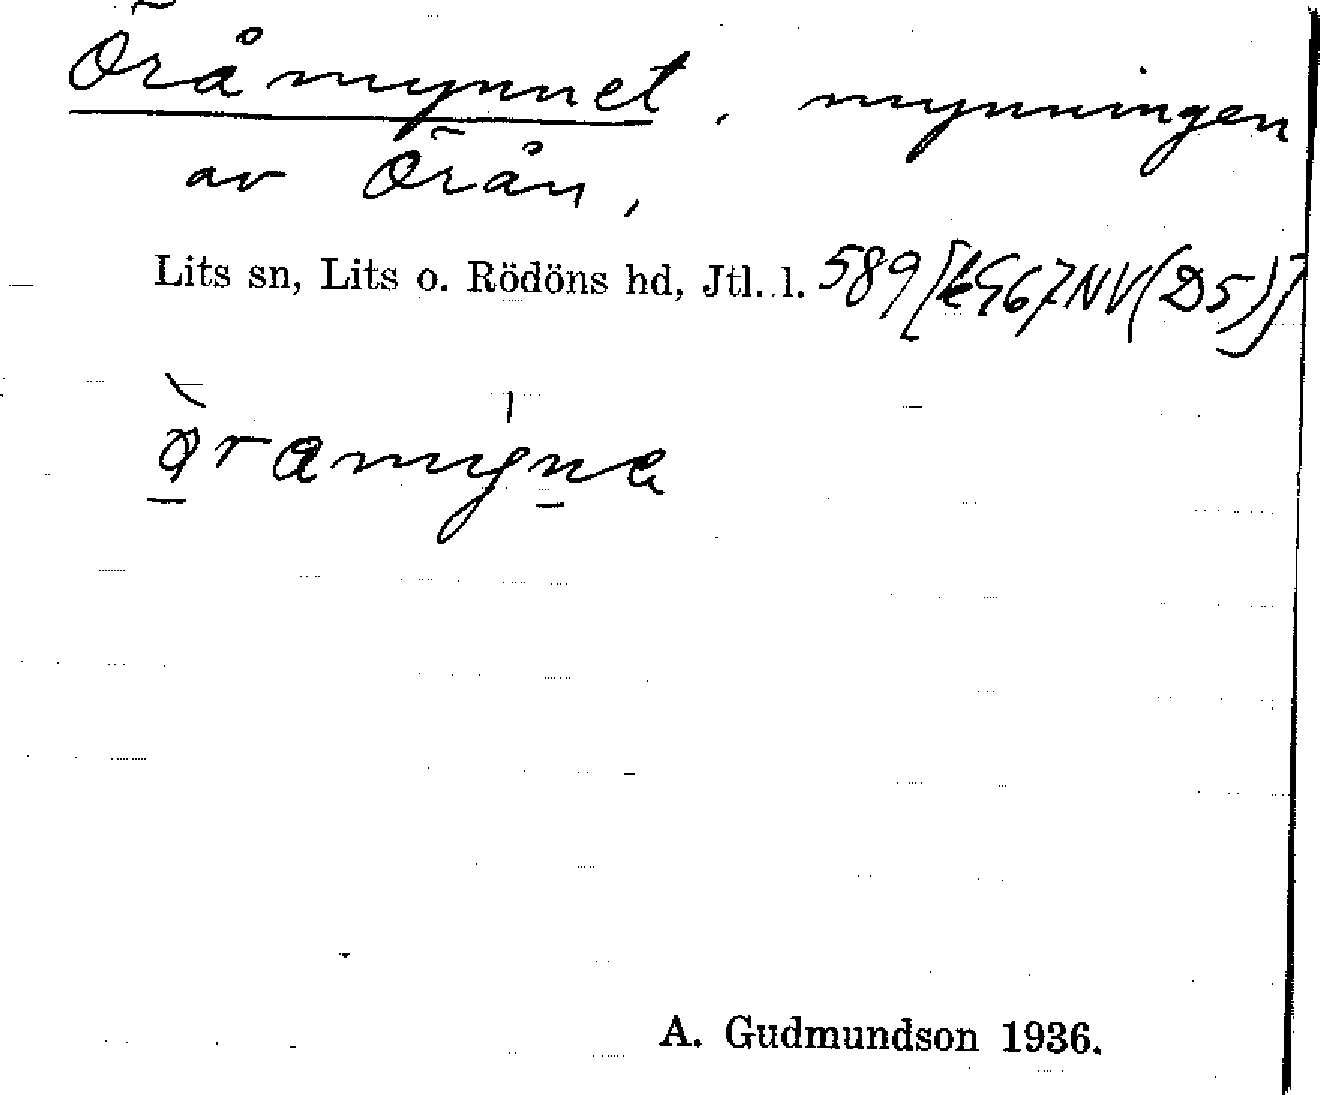 Öråmynnet, mynningen
av Örån,
Lits sn, Lits o. Rödöns hd, Jtl. l. 589 [k 567 NV (D5)]
A. Gudmundson 1936.